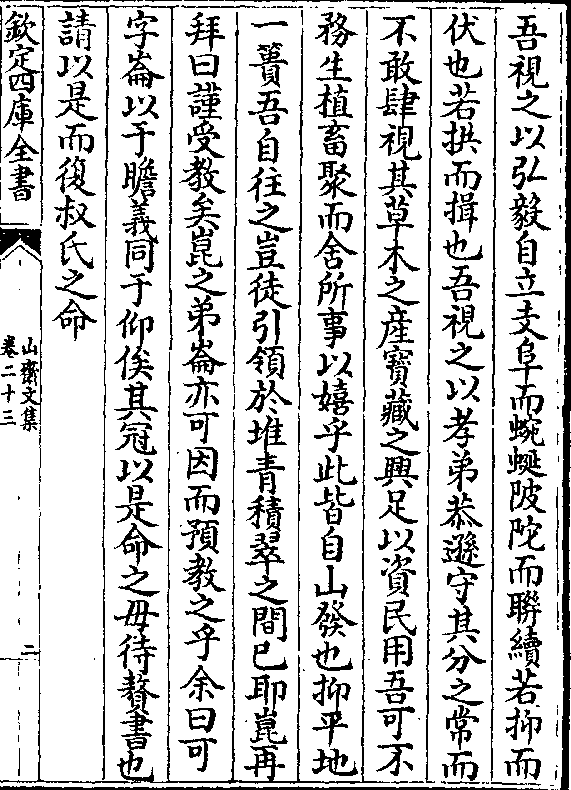 吾視之以弘毅自立支阜而蜿蜒陂陀而聯續若抑而
伏也若拱而揖也吾視之以孝弟恭遜守其分之常而
不敢肆視其草木之產寶藏之興足以資民用吾可不
務生植畜聚而舍所事以嬉乎此皆自山發也抑平地
一簣吾自往之豈徒引領於堆青積翠之間已耶崑再
拜曰謹受教矣崑之弟崙亦可因而預教之乎余曰可
字崙以于瞻義同于仰俟其冠以是命之毋待贅書也
請以是而復叔氏之命
欽定四庫全書
山齋文集
卷二十三
二